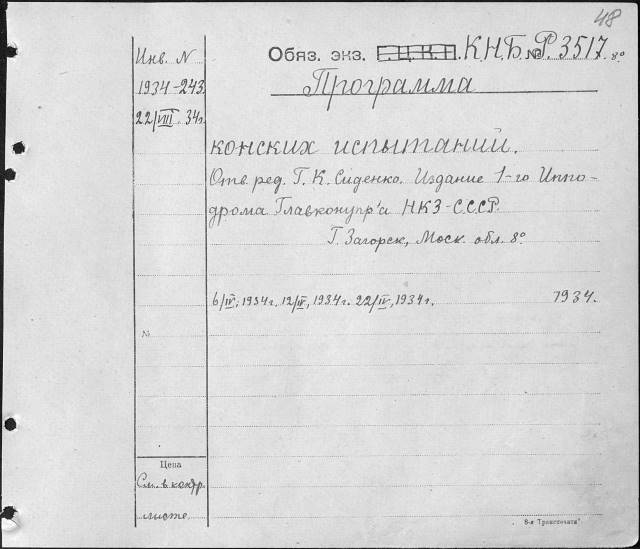 48
Инв. N
1934-243.
22/VIII. 34г.
Обяз. экз. Г.Ц.К.П. К.Н.Б. № Р. 3517. 8°
Программа
конских испытаний.
Отв. ред. Г. К. Сіденко. Издание 1-го Иппо-
дрома Главконупр'а НКЗ-СССР.
Г. Загорск, Моск. обл. 8°.
6/IV, 1934г. 12/IV, 1934г. 22/IV, 1934г. 1934.
№
Цена
См. в контр.
листе
8-я "Транспечати"